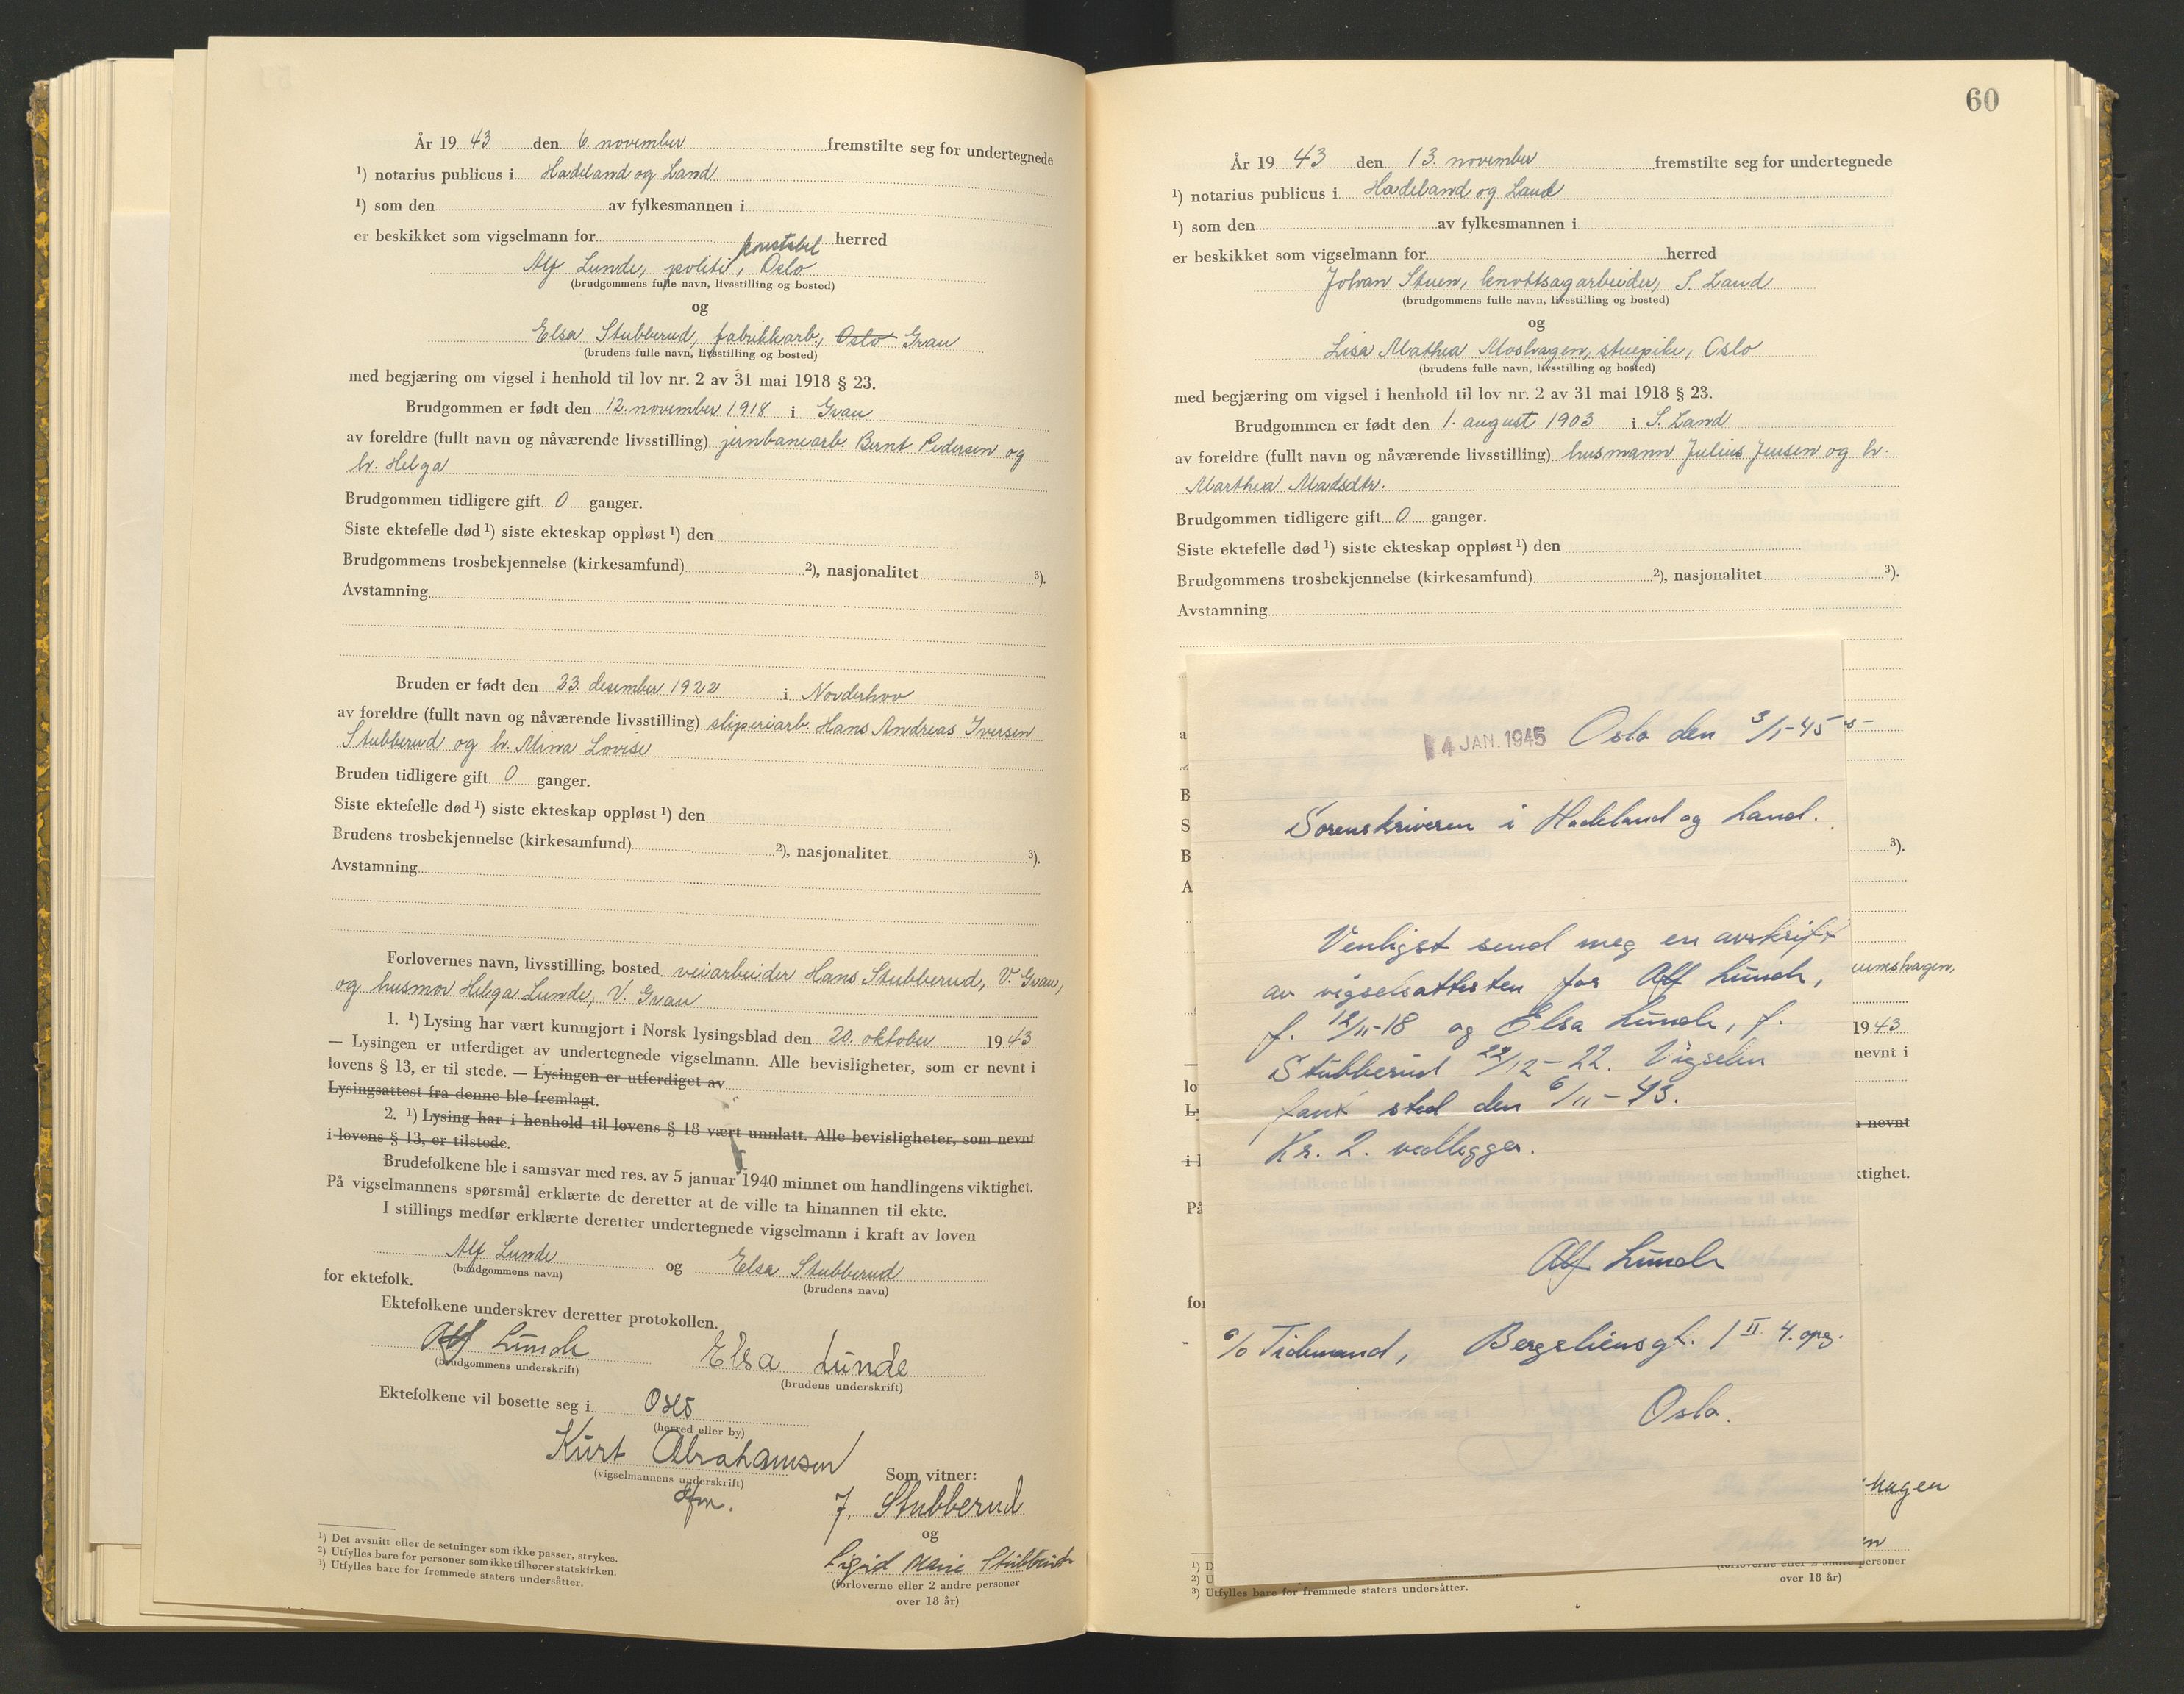 År 19 43 den 6. november fremstilte seg for undertegnede
¹) notarius publicus i Hadeland og Land
¹) som den av fylkesmannen i
er beskikket som vigselmann for herred
konstabel
Alf Lunde, politi, Oslo
(brudgommens fulle navn, livsstilling og bosted)
og
Elsa Stubberud, fabrikkarb., Oslo Gran
(brudens fulle navn, livsstilling og bosted)
med begjæring om vigsel i henhold til lov nr. 2 av 31 mai 1918 § 23.
Brudgommen er født den 12. november 1918 i Gran
av foreldre (fullt navn og nåværende livsstilling) jernbanearb. Bernt Pedersen og
h. Helga
Brudgommen tidligere gift 0 ganger.
Siste ektefelle død ¹) siste ekteskap oppløst ¹) den
Brudgommens trosbekjennelse (kirkesamfund) ²), nasjonalitet ³).
Avstamning
Bruden er født den 23. desember 1922 i Norderhov
av foreldre (fullt navn og nåværende livsstilling) sliperiarb. Hans Andreas Iversen
Stubberud og h. Mina Lovise
Bruden tidligere gift 0 ganger.
Siste ektefelle død ¹) siste ekteskap oppløst ¹) den
Brudens trosbekjennelse (kirkesamfund) ²), nasjonalitet ³).
Avstamning
Forlovernes navn, livsstilling, bosted veiarbeider Hans Stubberud, V. Gran,
og husmor Helga Lunde, V. Gran
1. ¹) Lysing har vært kunngjort i Norsk lysingsblad den 20. oktober 19 43
— Lysingen er utferdiget av undertegnede vigselmann. Alle bevisligheter, som er nevnt i
lovens § 13, er til stede. — Lysingen er utferdiget av
Lysingsattest fra denne ble fremlagt.
2. ¹) Lysing har i henhold til lovens § 18 vært unnlatt. Alle bevisligheter, som nevnt
i lovens § 13, er tilstede.
Brudefolkene ble i samsvar med res. av 5 januar 1940 minnet om handlingens viktighet.
På vigselmannens spørsmål erklærte de deretter at de ville ta hinannen til ekte.
I stillings medfør erklærte deretter undertegnede vigselmann i kraft av loven
Alf Lunde og Elsa Stubberud
(brudgommens navn) (brudens navn)
for ektefolk.
Ektefolkene underskrev deretter protokollen.
Alf Lunde Elsa Lunde
(brudgommens underskrift) (brudens underskrift)
Ektefolkene vil bosette seg i Oslo
(herred eller by)
Kurt Abrahamsen
(vigselmannens underskrift)
Som vitner:
J. Stubberud
og
Sigrid Marie Stubberud
(forloverne eller 2 andre personer
over 18 år)
¹) Det avsnitt eller de setninger som ikke passer, strykes.
²) Utfylles bare for personer som ikke tilhører statskirken.
³) Utfylles bare for fremmede staters undersåtter.
60
År 19 43 den 13. november fremstilte seg for undertegnede
¹) notarius publicus i Hadeland og Land
¹) som den av fylkesmannen i
er beskikket som vigselmann for herred
Johan Stuen, knottsagarbeider, S. Land
(brudgommens fulle navn, livsstilling og bosted)
og
Lisa Mathea Moshagen, stuepike, Oslo
(brudens fulle navn, livsstilling og bosted)
med begjæring om vigsel i henhold til lov nr. 2 av 31 mai 1918 § 23.
Brudgommen er født den 1. august 1903 i S. Land
av foreldre (fullt navn og nåværende livsstilling) husmann Julius Jensen og h.
Marthea Madsdtr.
Brudgommen tidligere gift 0 ganger.
Siste ektefelle død ¹) siste ekteskap oppløst ¹) den
Brudgommens trosbekjennelse (kirkesamfund) ²), nasjonalitet ³).
Avstamning
4 JAN. 1945 Oslo den 3/1-45
Sorenskriveren i Hadeland og Land.
Venligst send meg en avskrift
av vigselsattesten for Alf Lunde,
f. 12/11-18 og Elsa Lunde, f.
Stubberud 23/12-22. Vigselen
fant sted den 6/11-43.
Kr. 2. vedlegger.
Alf Lunde
c/o Tidemand, Bergsliensgt. 1 II 4. opg.
Oslo.
³).
19 43
nevnt i
nevnt
ktighet.
hagen
(forloverne eller 2 andre personer
over 18 år)
³) Utfylles bare for fremmede staters undersåtter.